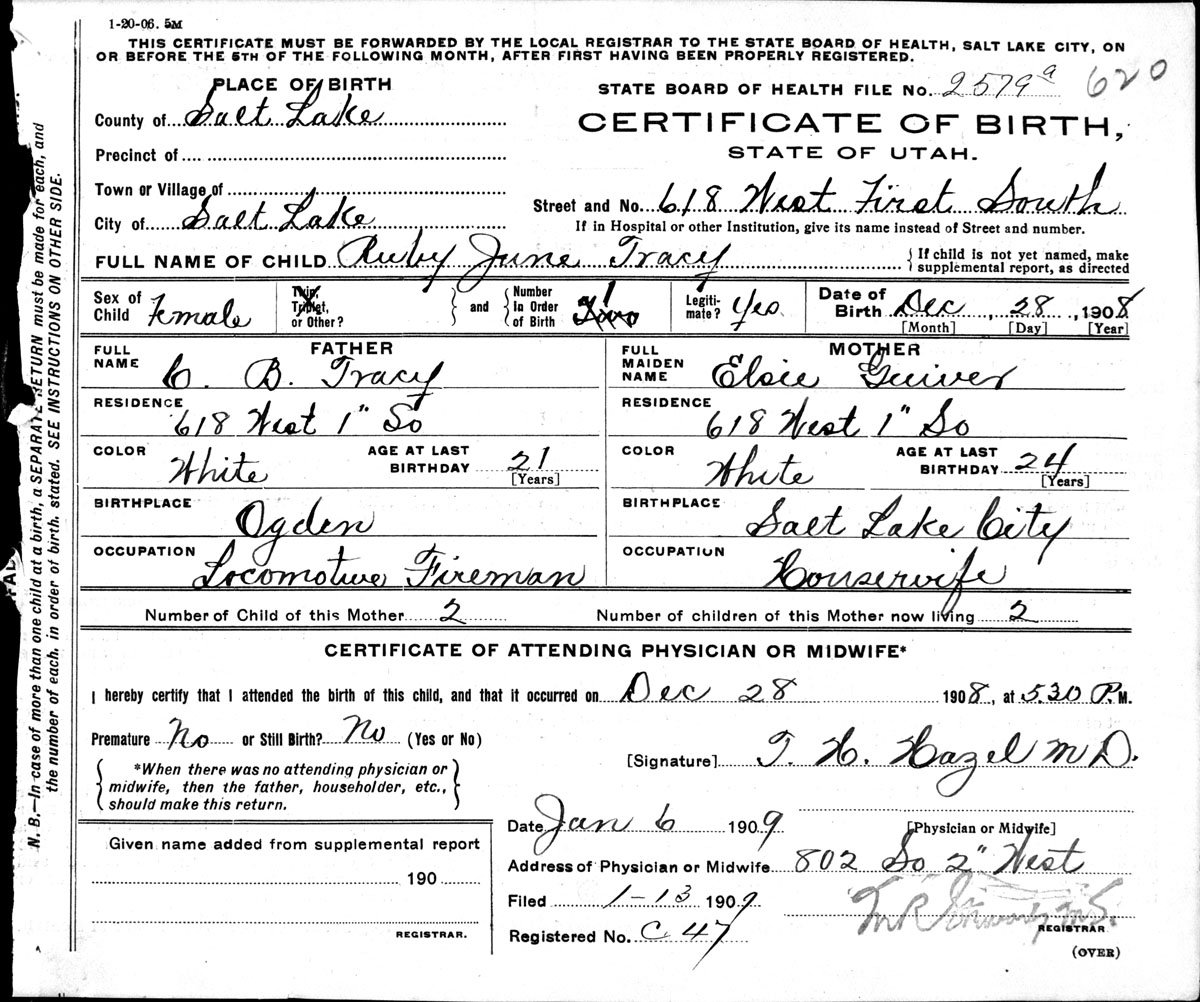 1-20-06. 5M
THIS CERTIFICATE MUST BE FORWARDED BY THE LOCAL REGISTRAR TO THE STATE BOARD OF HEALTH, SALT LAKE CITY, ON
OR BEFORE THE 5TH OF THE FOLLOWING MONTH, AFTER FIRST HAVING BEEN PROPERLY REGISTERED.
PLACE OF BIRTH
STATE BOARD OF HEALTH FILE No. 2579a 620
County of Salt Lake
CERTIFICATE OF BIRTH,
STATE OF UTAH.
Precinct of
Town or Village of
Street and No. 618 West First South
City of Salt Lake
If in Hospital or other Institution, give its name instead of Street and number.
FULL NAME OF CHILD Ruby June Tracy { If child is not yet named, make
supplemental report, as directed
Sex of Child Female Twin, Triplet, or Other? { } and { Number In Order of Birth 1 Two Legiti-mate? Yes Date of Birth Dec, 28, 1908
[Month] [Day] [Year]
FATHER
FULL NAME C. B. Tracy
MOTHER
FULL MAIDEN NAME Elsie Guiver
RESIDENCE 618 West 1" So
RESIDENCE 618 West 1" So
COLOR White AGE AT LAST BIRTHDAY 21 [Years]
COLOR White AGE AT LAST BIRTHDAY 24 [Years]
BIRTHPLACE Ogden
BIRTHPLACE Salt Lake City
OCCUPATION Locomotive Fireman
OCCUPATION Housewife
Number of Child of this Mother 2 Number of children of this Mother now living 2
CERTIFICATE OF ATTENDING PHYSICIAN OR MIDWIFE*
I hereby certify that I attended the birth of this child, and that it occurred on Dec 28 1908, at 5.30 P.M.
Premature No or Still Birth? No (Yes or No)
[Signature] T. H. Hazel M D.
{ *When there was no attending physician or
midwife, then the father, householder, etc.,
should make this return. }
Date Jan 6 1909 [Physician or Midwife]
Given name added from supplemental report
190
REGISTRAR.
Address of Physician or Midwife 802 So 2" West
Filed 1-13 1909.
Registered No. C 47
REGISTRAR
(OVER)
N. B.—In case of more than one child at a birth, a SEPARATE RETURN must be made for each, and
the number of each, in order of birth, stated. SEE INSTRUCTIONS ON OTHER SIDE.